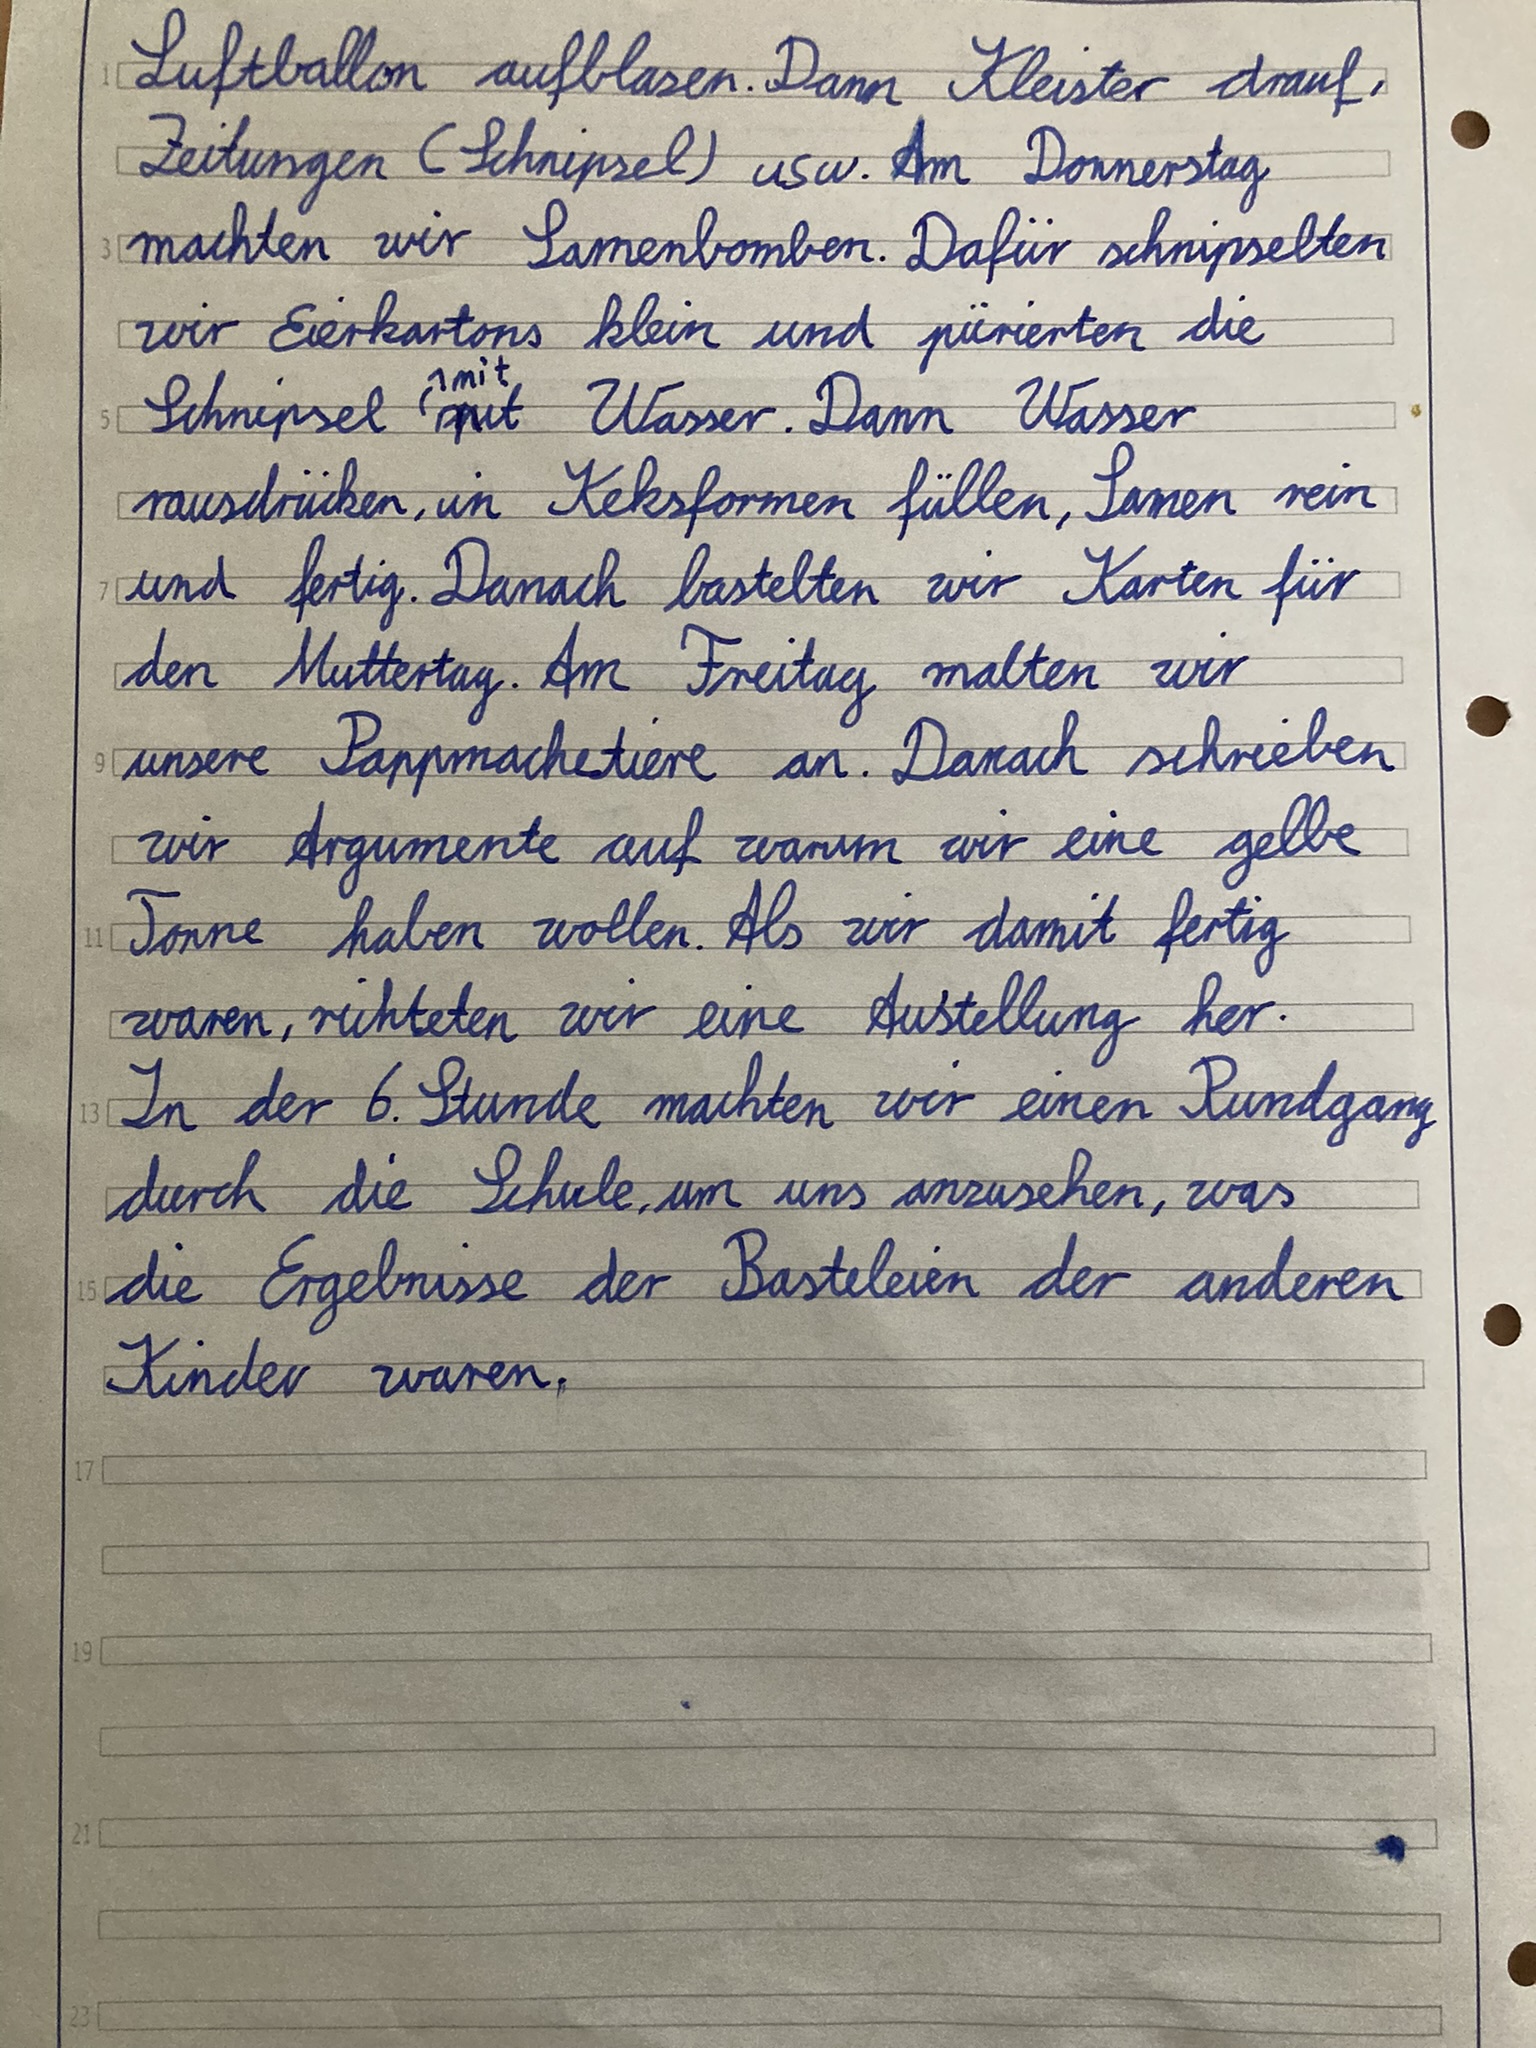 1 Luftballon aufblasen. Dann Kleister drauf,
Zeitungen (Schnipsel) usw. Am Donnerstag
3 machten wir Samenbomben. Dafür schnipselten
wir Eierkartons klein und pürierten die
mit
5 Schnipsel Wasser. Dann Wasser
rausdrücken, in Keksformen füllen, Samen rein
7 und fertig. Danach bastelten wir Karten für
den Muttertag. Am Freitag malten wir
9 unsere Pappmachetiere an. Danach schrieben
wir Argumente auf warum wir eine gelbe
11 Tonne haben wollen. Als wir damit fertig
waren, richteten wir eine Austellung her.
13 In der 6. Stunde machten wir einen Rundgang
durch die Schule, um uns anzusehen, was
15 die Ergebnisse der Basteleien der anderen
Kinder waren.
17
19
21
23